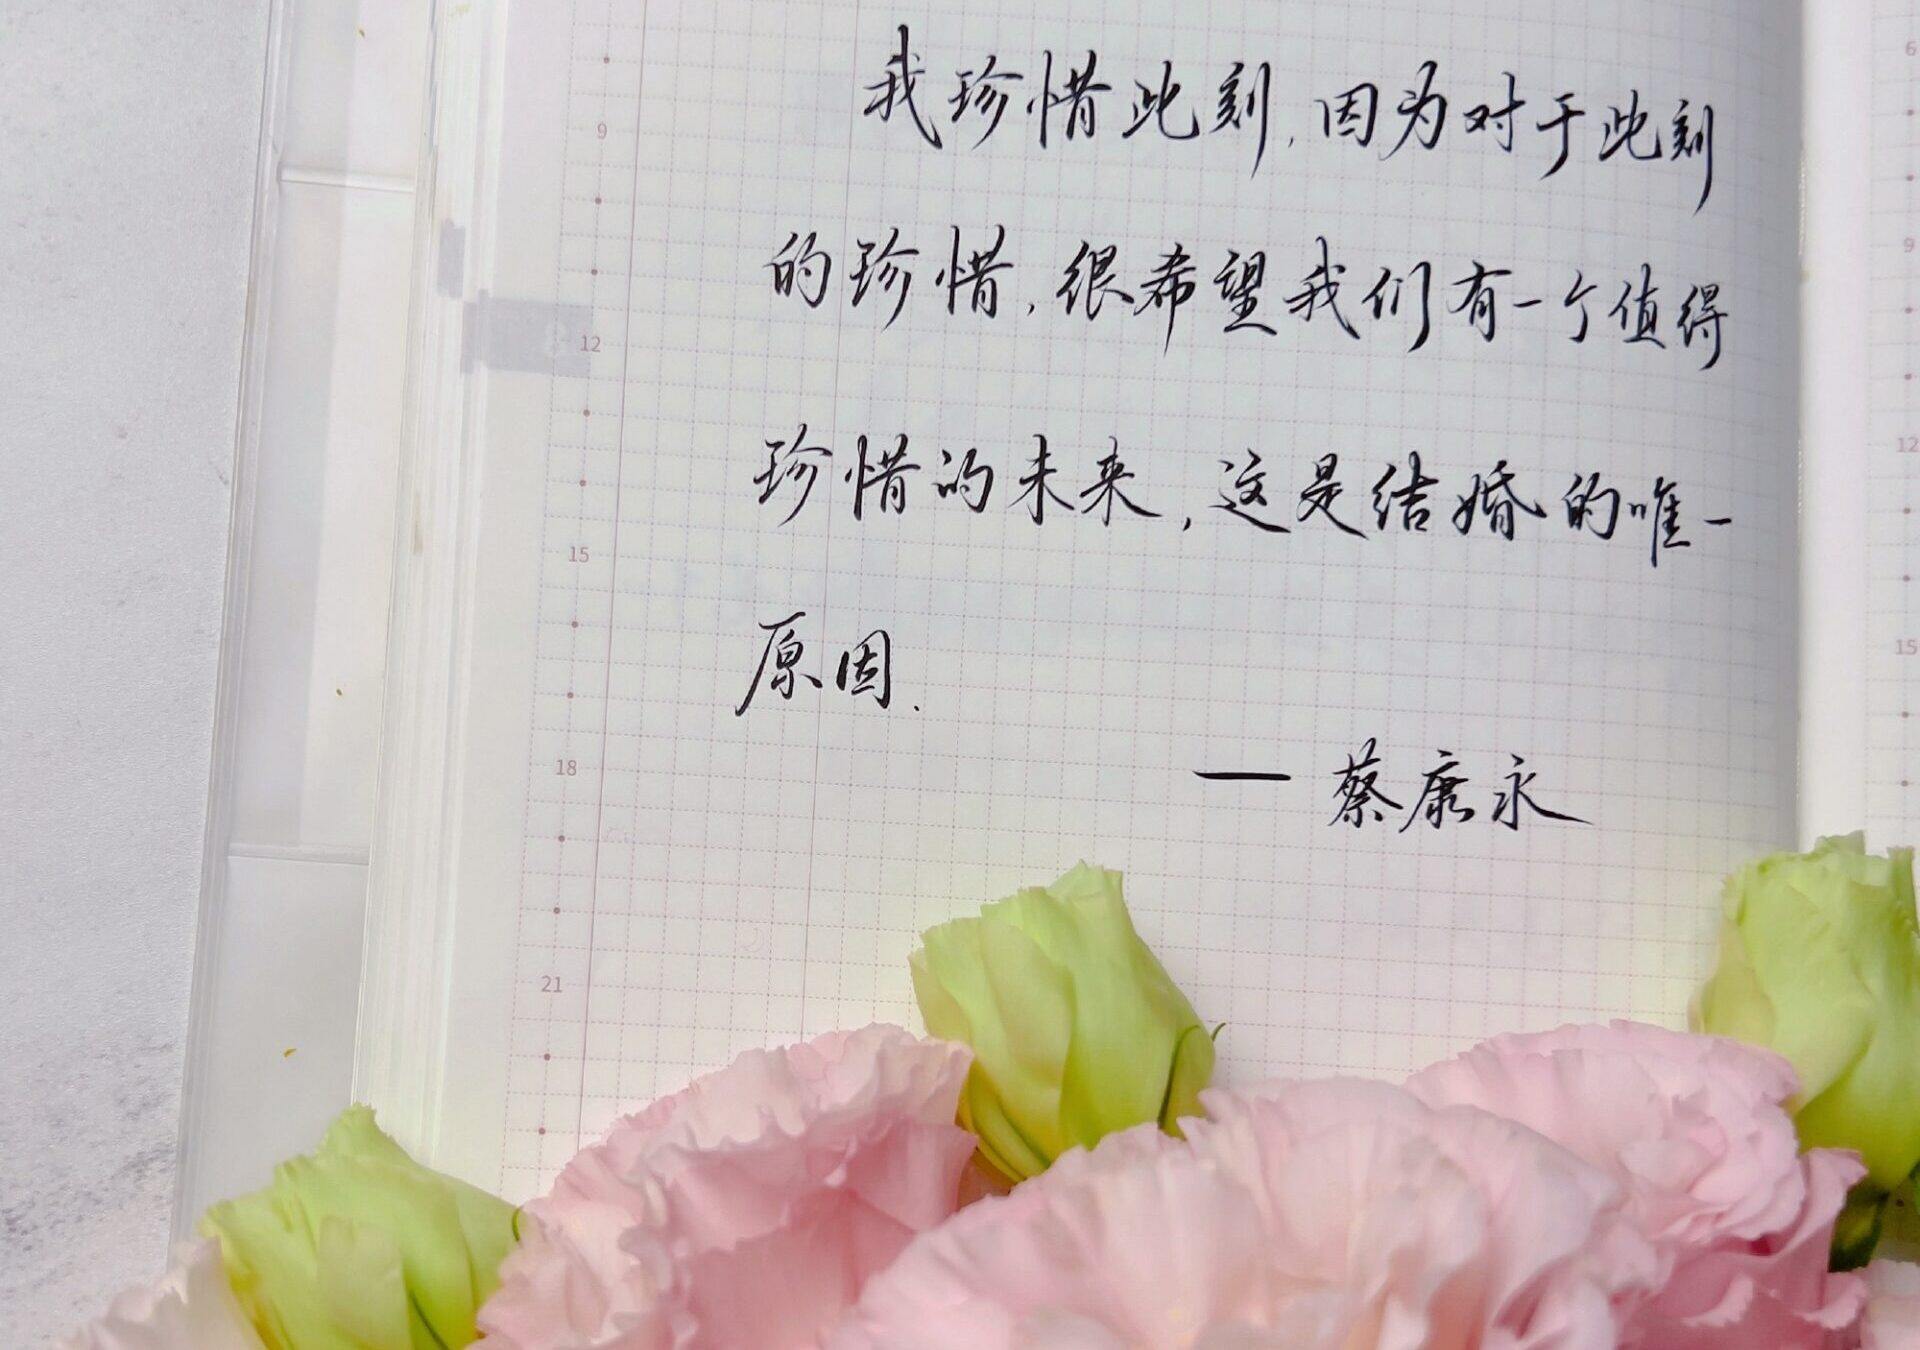 我珍惜此刻,因为对于此刻
的珍惜,很希望我们有一个值得
珍惜的未来,这是结婚的唯一
原因.
— 蔡康永
9
12
15
18
21
6
9
12
15